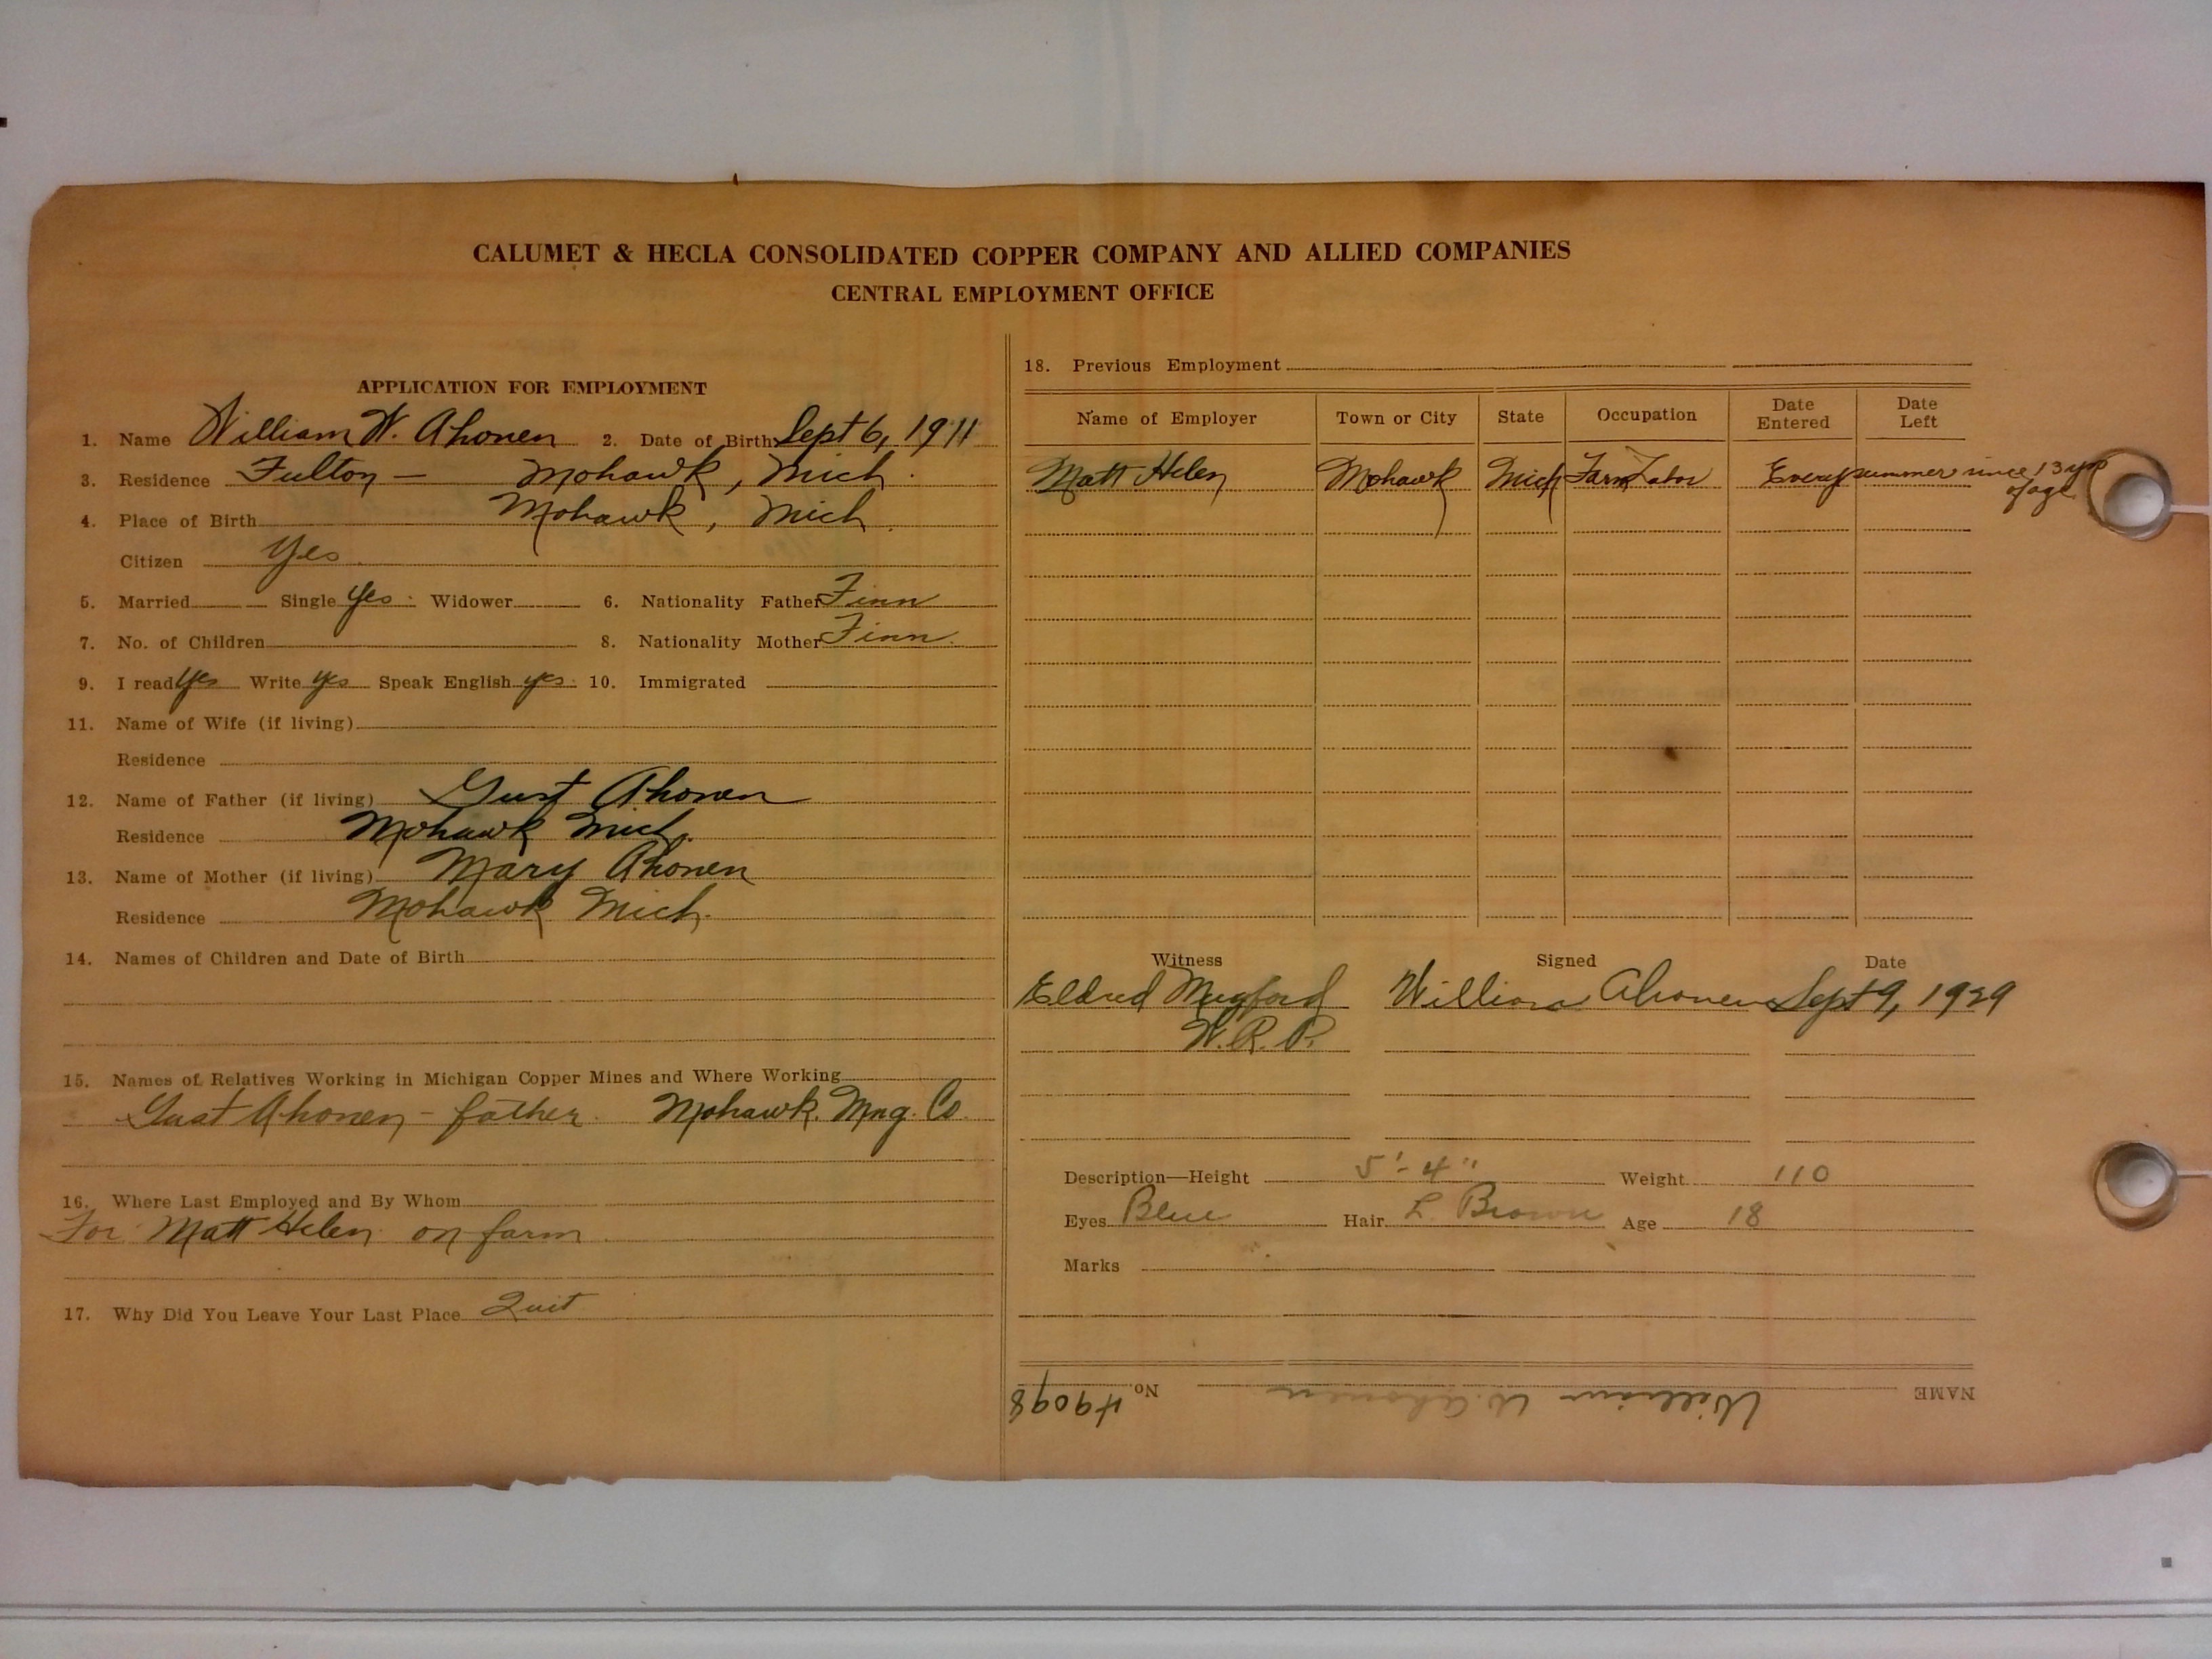 CALUMET & HECLA CONSOLIDATED COPPER COMPANY AND ALLIED COMPANIES
CENTRAL EMPLOYMENT OFFICE
APPLICATION FOR EMPLOYMENT
1. Name William W. Ahonen 2. Date of Birth Sept 6, 1911
3. Residence Fulton — Mohawk, Mich.
4. Place of Birth Mohawk, Mich.
Citizen Yes
5. Married — Single Yes. Widower 6. Nationality Father Finn
7. No. of Children 8. Nationality Mother Finn.
9. I read Yes Write Yes Speak English yes. 10. Immigrated
11. Name of Wife (if living)
Residence
12. Name of Father (if living) Gust Ahonen
Residence Mohawk Mich.
13. Name of Mother (if living) Mary Ahonen
Residence Mohawk Mich.
14. Names of Children and Date of Birth
15. Names of Relatives Working in Michigan Copper Mines and Where Working
Gust Ahonen - father. Mohawk. Mng. Co.
16. Where Last Employed and By Whom
For Matt Helen on farm
17. Why Did You Leave Your Last Place Quit
18. Previous Employment
Name of Employer Town or City State Occupation Date Entered Date Left
Matt Helen Mohawk Mich Farm Labor Every summer since 13 yrs
of age
Witness Signed Date
Eldred Mugford William Ahonen Sept 9, 1929
W.R.P.
Description—Height 5'-4" Weight 110
Eyes Blue Hair L. Brown Age 18
Marks
NAME William W. Ahonen No. 49098